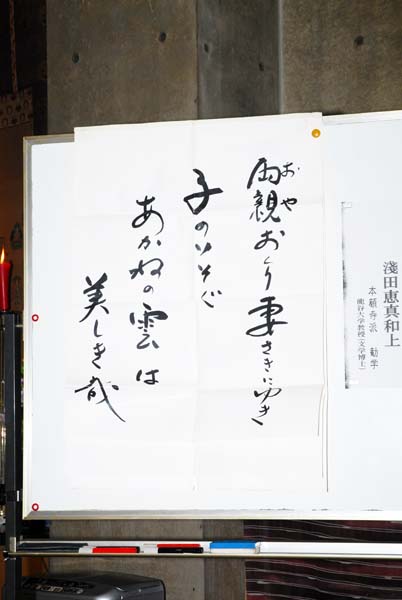 淺田恵真和上
本願寺派 勧学
龍谷大学教授(文学博士)
おや
両親おくり妻さきにゆき
子のいそぐ
あかねの雲は
美しき哉